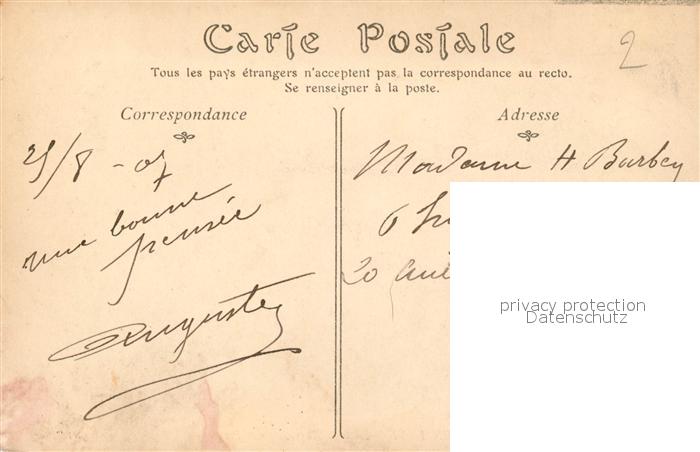 Carte Postale
2
Tous les pays étrangers n'acceptent pas la correspondance au recto.
Se renseigner à la poste.
Correspondance
25/8 - 07
une bonne
pensée
Auguste
Adresse
Madame H Barbey
6
20
privacy protection
Datenschutz